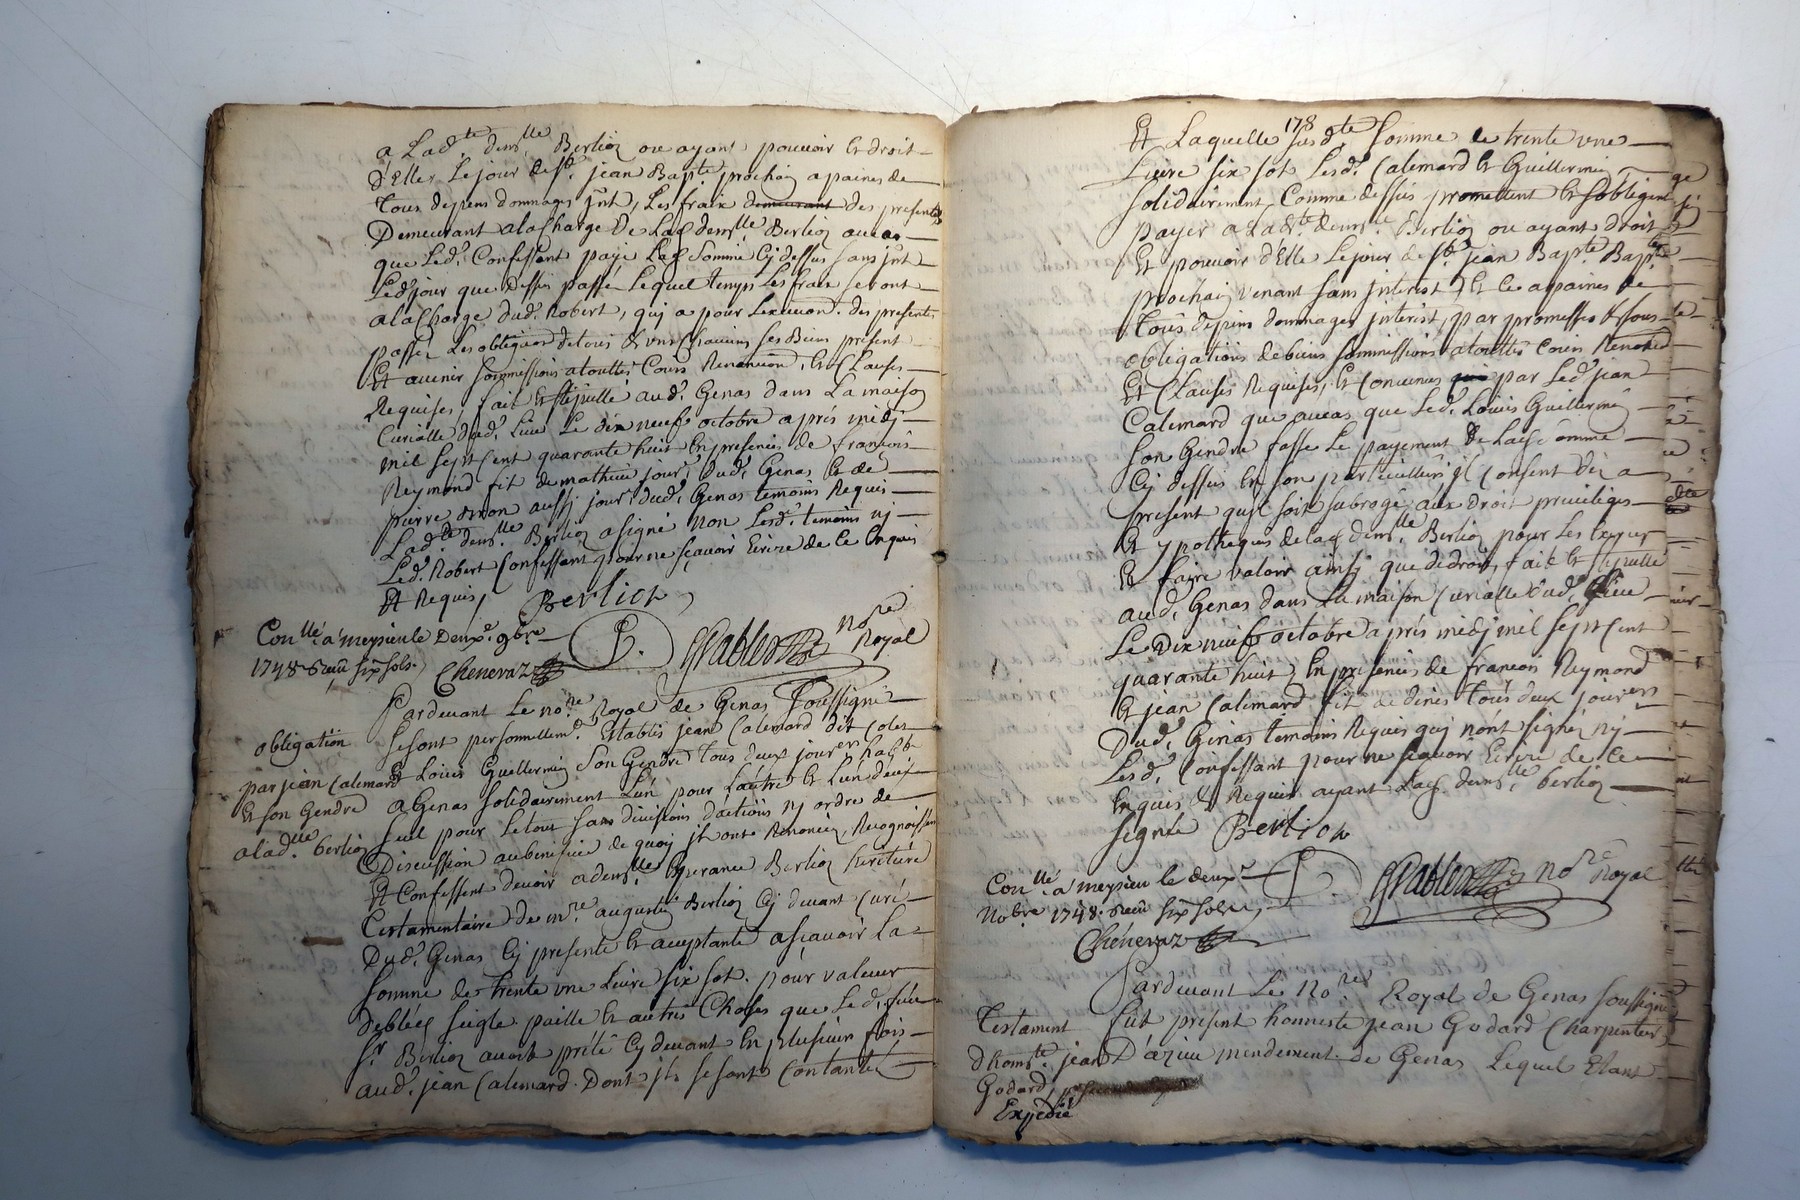 a Lad.te dem.lle Berlioz ou ayant pouvoir et droit
d'Elle, Le jour de st. jean Bap.te prochain a paines de
tous depens dommages jnt, Les fraix demeurant des presentes
Demeurant a la Charge De Lad dem.lle Berlioz au cas
que Led. Confessant paye Lad Somme Cy dessus sans jnt
Led jour que dessus passé Lequel temps Les fraix seront
a la Charge dud. Robert, quj a pour Lexecuon. des presentes
passé Les obligaons de tous et uns Chacuns ses Biens present
Et avenir soommissions a touttes Cours Renonciaon, Et Clauses
Requises, fait et stipullé aud. Genas dans La maison
Curialle dud. Lieu Le dix neuf octobre aprés midj
mil sept Cent quarante huit En presence de françois
Reymond fit de mathieu jour.r dud. Genas et de
pierre aussj jour.r dud. Genas temoins Requis
Lad.te dem.lle Berlioz a signé non Lesd. temoins nj
Led. Robert Confessant pour ne sçavoir Ecrire de Ce Enquis
Et Requis,
Berlioz
Con.llé a meysieu le deux.e 9bre
1748 Recu six sols.
Chenevaz
no.re Royal
Pardevant Le no.re Royal de Genas soussigné
obligation
se sont personnellem.t Etablis jean Calemard dit
par jean Calemard
Et Louis Guellermin Son Gendre tous deux jour.ers hab.t
Et son Gendre
a Genas solidairement L'un pour L'autre et L'un d'eux
a lad.lle berlioz
seul pour Le tout sans divisions d'actions nj ordre de
Discussion au benefice de quoy jls ont Renoncéz, Recognoissent
Et Confessent devoir a dem.lle Esperance Berlioz heritiere
testamentaire de m.re augustin Berlioz Cy devant Curé
Dud. Genas Cy presente et acceptante asçavoir La
somme de trente une Livre six sol. pour valeur
de bléd seigle paille et autres Choses que Led. feu
s.r Berlioz avoit prété Cy devant En plusieurs fois
aud. jean Calemard. Dont jls se sont Contantés
178
Et Laquelle susd.te somme de trente une
Livre six sol Lesd. Calemard et Guillermin
solidairement Comme dessus promettent et s'obligent
payer a Lad.te dem.lle Berlioz ou ayant droit
Et pouvoir d'Elle Le jour de st. jean Bap.te Bap.te
prochain venant sans jnterest Et Ce a paines de
tous depens dommages jnterest, par promesses et sous
obligations de biens sommissions a touttes Cours Renonced
Et Clauses Requises, Et Convenu par Led. jean
Calemard que au cas que Led. Louis Guellermin
son Gendre fasse Le payement de Lad somme
Cy dessus En son particullier jl Consent dez a
present qu'jl soit subrogé aux droit privileges
Et ypotheques de lad dem.lle Berlioz pour Les Exercer
Et faire valoir ainsj que de droit, fait et stipullé
aud. Genas dans La maison Curialle dud. Lieu
Le Dix neuf octobre aprés midj mil sept Cent
quarante huit En presence de françois Reymond
Et jean Calemard fit de denis tous deux jour.ers
Dud. Genas temoins Requis quj n'ont signé nj
Lesd. Confessant pour ne sçavoir Ecrire de Ce
Enquis et Requis ayant Lad. dem.lle berlioz
signée Berlioz
no.re Royal
Con.llé a meysieu le deux.e
No.bre 1748. Recu six sols,
Chénevaz
Pardevant Le No.re Royal de Genas soussigné
Testament
fut present honneste jean Godard Charpentier
d'hon.te jean
D'azieu mendement de Genas Lequel Etant
Godard
Expedié